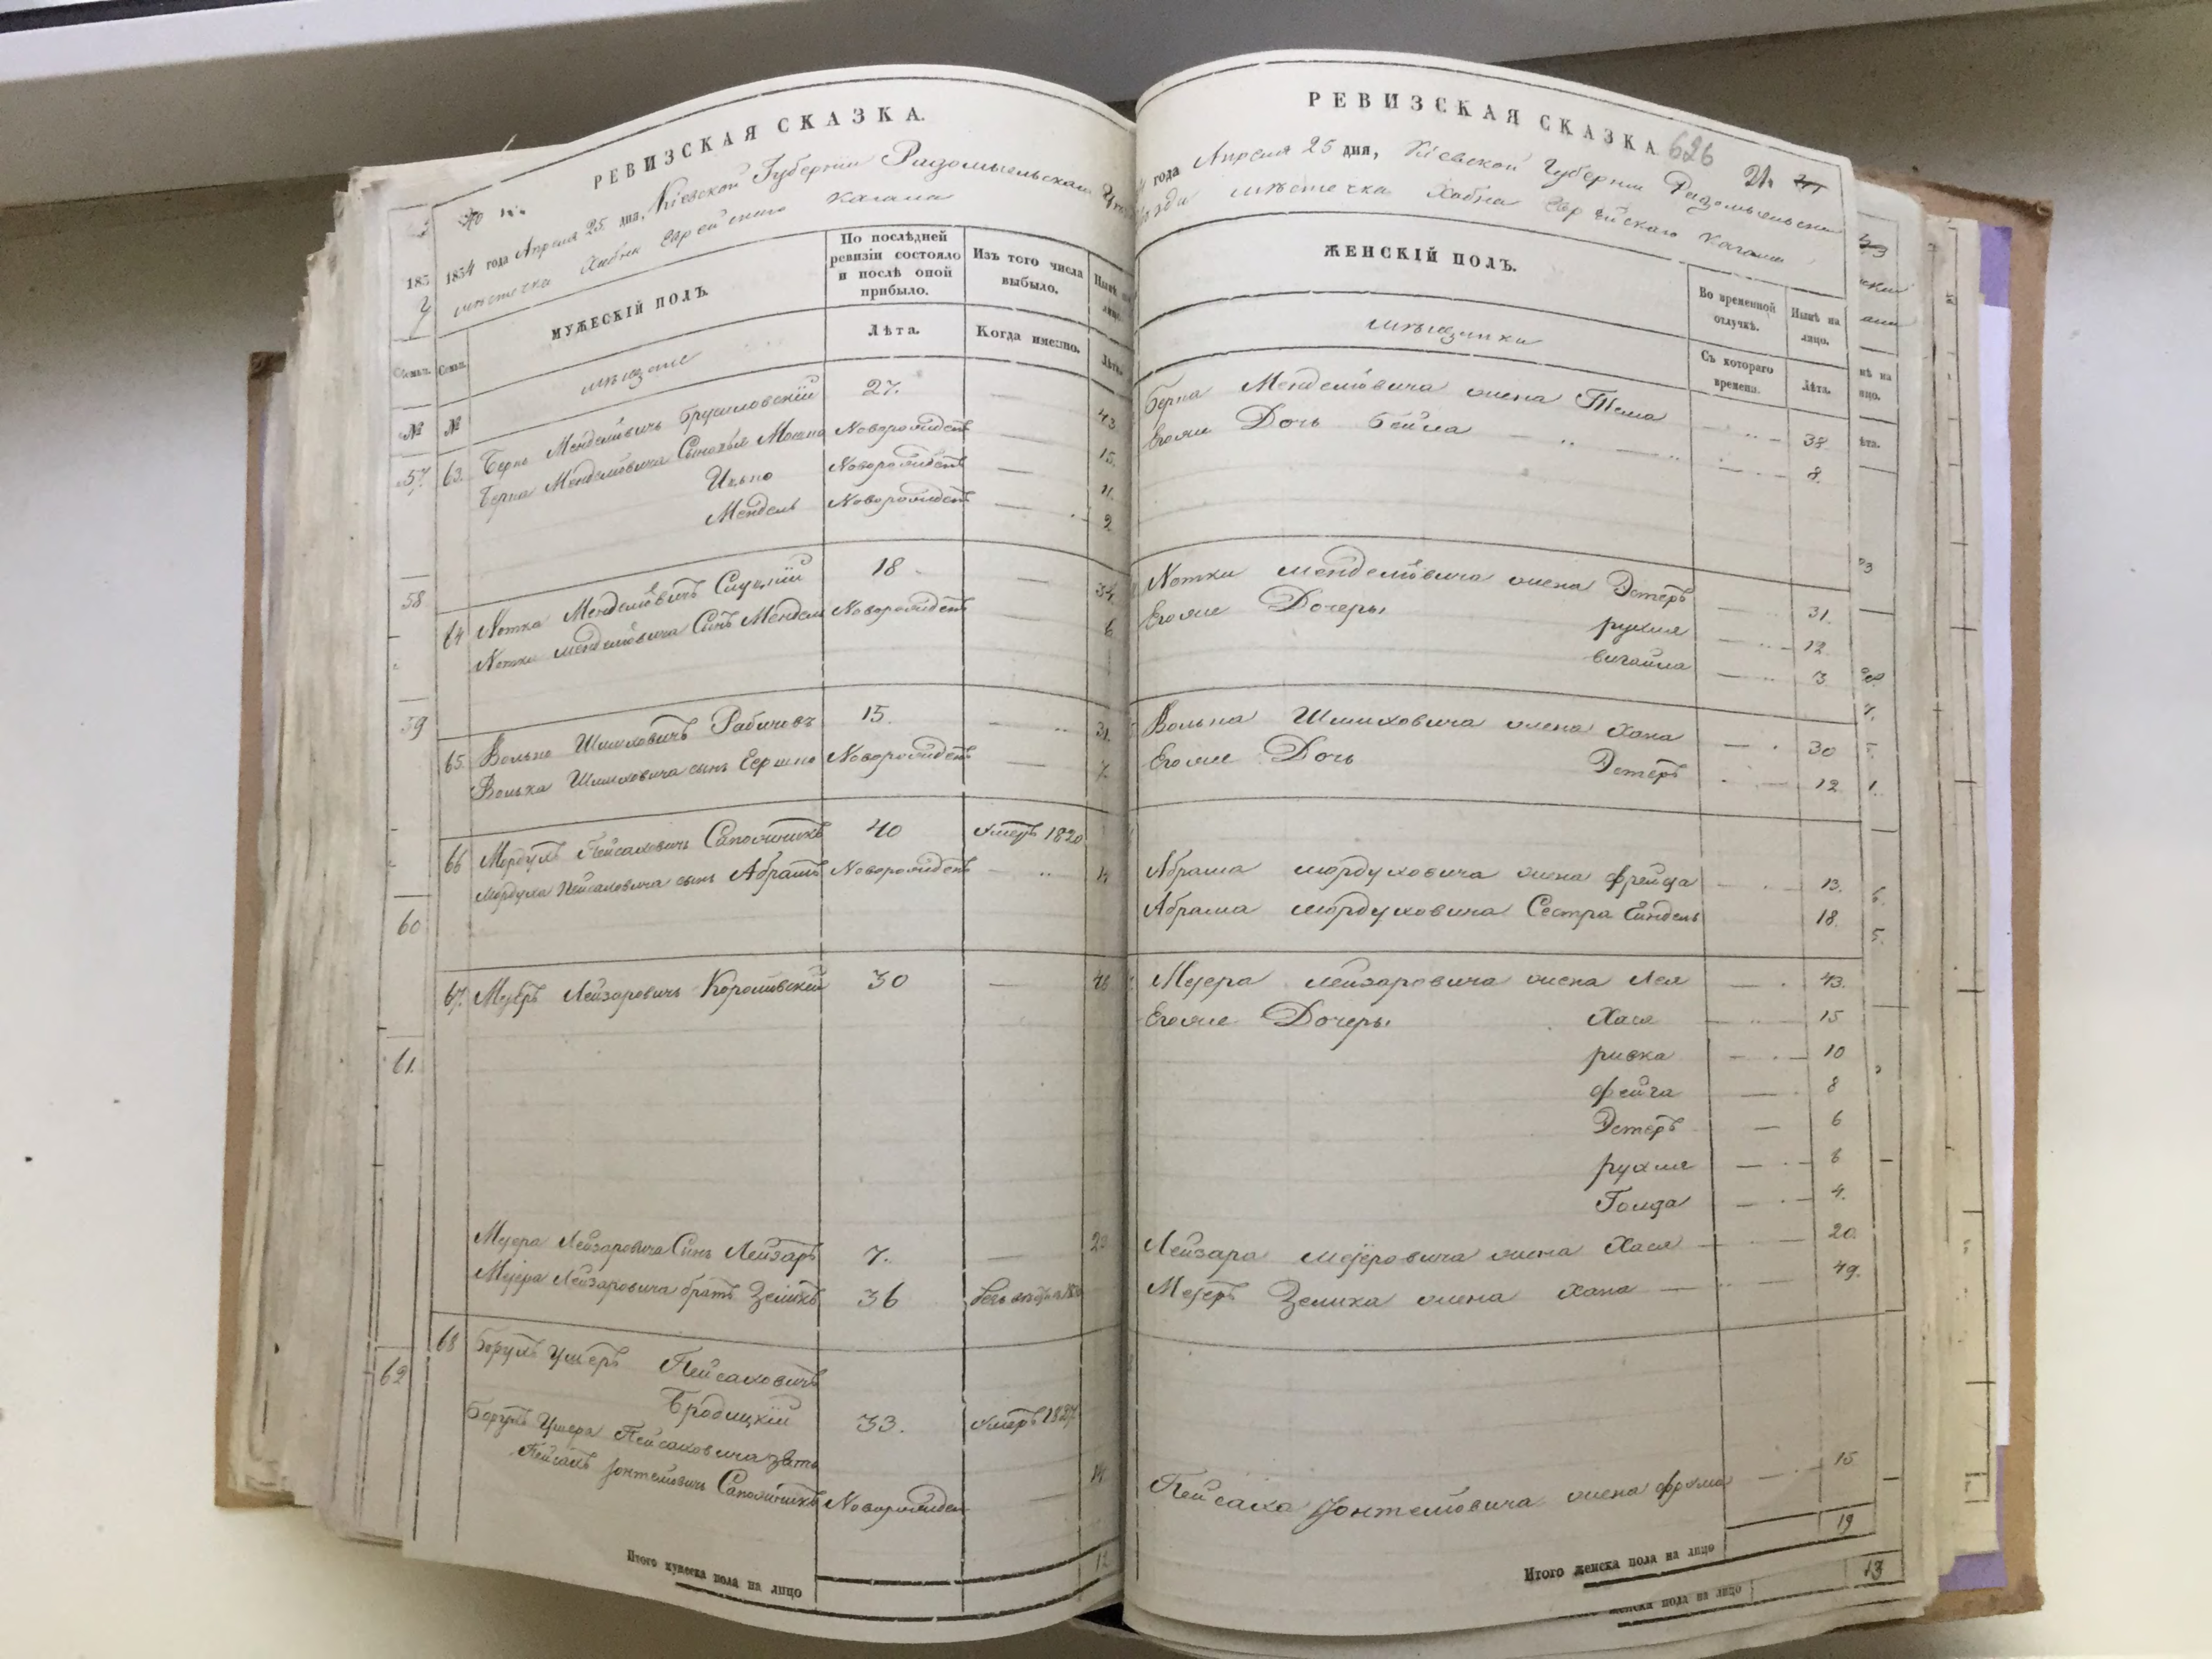 РЕВИЗСКАЯ СКАЗКА.
1834 года Апреля 25 дня, Кіевской Губерніи Радомысльскаго
мѣстечка Хабна Еврейскаго Кагала
Семьи.
№
МУЖЕСКІЙ ПОЛЪ.
По послѣдней ревизіи состояло и послѣ оной прибыло.
Изъ того числа выбыло.
Лѣта.
Когда именно.
Лѣта.
мѣщане
63. Берко Менделевичъ Брусиловскій 27. 43
Берка Менделевича Сыновья Мошко Новорожденъ 15.
Ицько Новорожденъ 11.
Мендель Новорожденъ 9.
64 Нотка Менделевичъ Слуцкій 18 34.
Нотки Менделевича Сынъ Мендель Новорожденъ 6
65. Волько Шлиховичъ Рабичовъ 15. 31.
Волька Шлиховича сынъ Гершко Новорожденъ 7.
66 Мордухъ Пейсаховичъ Сапожникъ 40 умеръ 1820
Мордуха Пейсаховича сынъ Абрамъ Новорожденъ 14
67. Меjеръ Лейзаровичъ Королювскій 30 46
Меjера Лейзаровича Сынъ Лейзаръ 7. 23
Меjера Лейзаровича братъ Зеликъ 36
68 Борухъ Ушеръ Пейсаховичъ
Бродицкій 33. умеръ 1827
Борухъ Ушера Пейсаховича зять
Пейсахъ Jонтелювичъ Сапожникъ Новорожден 14
Итого мужеска пола на лицо 12
57.
58
59
60
61.
62
РЕВИЗСКАЯ СКАЗКА 626
21.
года Апреля 25 дня, Кіевской Губерніи Радомысльскаго
мѣстечка Хабна Еврейскаго Кагала
ЖЕНСКІЙ ПОЛЪ.
Во временной отлучкѣ.
Нынѣ на лицо.
Съ котораго времени.
Лѣта.
мѣщанки
Берка Менделевича жена Тема 38.
Егоже Дочь Бейла 8.
Нотки Менделевича жена Эстеръ 31.
Егоже Дочеры рухля 12
3
Волька Шлиховича жена Хана 30
Егоже Дочь Эстеръ 12
Абрама мордуховича жена фрейда 13.
Абрама мордуховича Сестра Гиндель 18.
Меjера Лейзаровича жена Лея 43.
Егоже Дочеры Хася 15
ривка 10
фейга 8
Эстеръ 6
рухля 6
Голда 4.
Лейзара меjеровича жена Хася 20.
Меjеръ Зелика жена Хана 49.
Пейсаха Jонтелювича жена фрума 15
Итого женска пола на лицо 19
женска пола на лицо 13